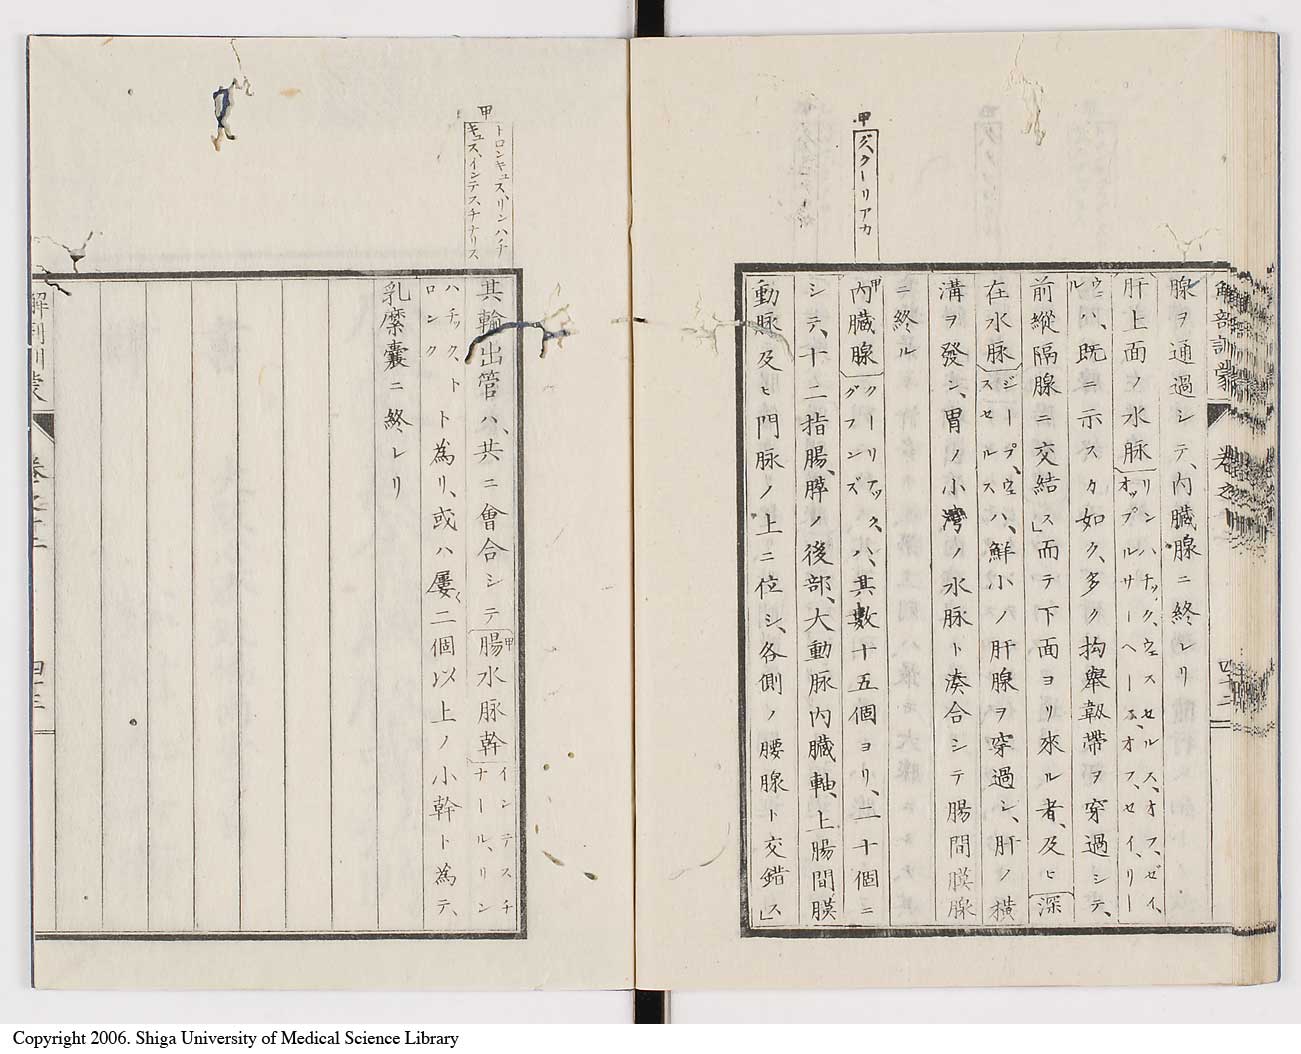 甲
グ、クーリアカ
解部訓蒙
巻之
四十二
腺ヲ通過シテ、内臓腺ニ終レリ
肝上面ノ水脉リンハチック、ウェスセルス、オフ、ゼイ、
オップルサーヘース、オフ、セイ、リー
ウェル
ハ、既ニ示スカ如ク、多ク拘舉靱帯ヲ穿過シテ、
前縱隔腺ニ交結ス」而テ下面ヨリ來ル者、及ヒ深
在水脉ジープ、ウェスセルス
ハ、鮮小ノ肝腺ヲ穿過シ、肝ノ横
溝ヲ發シ、胃ノ小灣ノ水脉ト湊合シテ腸間膜腺
ニ終ル
甲内臓腺クーリアック、グランズ
ハ、其數十五個ヨリ、二十個ニ
シテ、十二指腸、膵ノ後部、大動脉内臓軸、上腸間膜
動脉及ヒ門脉ノ上ニ位シ、各側ノ腰腺ト交錯ス」
甲
トロンキュス、リンハチ
キュス、インテスチナリス
其輸出管ハ、共ニ會合シテ甲腸水脉幹インテスチ
ナール、リン
ハチック、ト
ロンク
ト為リ、或ハ屢々二個以上ノ小幹ト為テ、
乳縻嚢ニ終レリ
解剖訓蒙
巻之十二
四十三
Copyright 2006. Shiga University of Medical Science Library